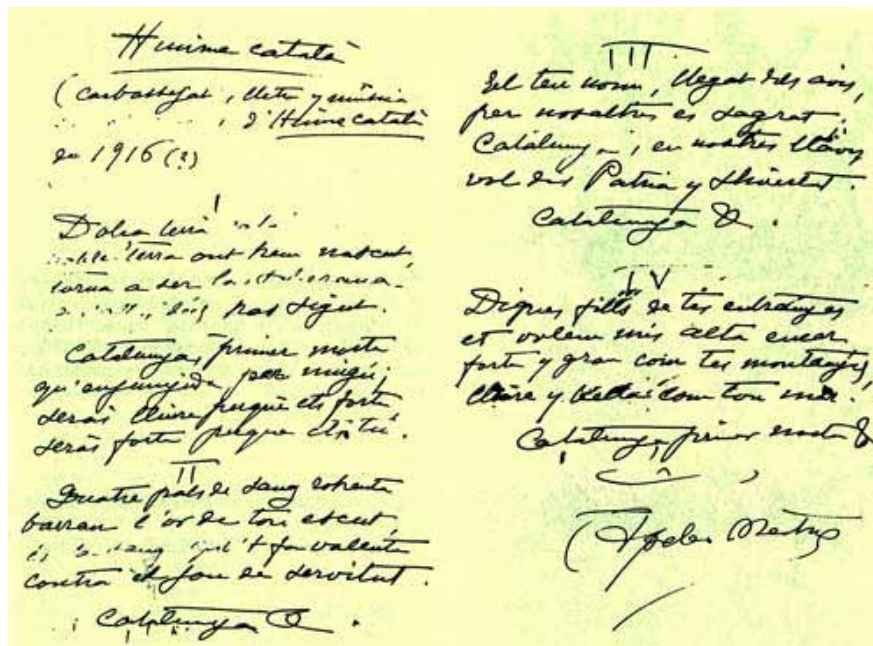 Himne català
(Carbassejat, lletra y música
d'Himne català
de 1916 (?)
I
Dolsa terra
terra ont hem nascut,
torna a ser la sobirana
has sigut.
Catalunya, primer morta
qu'enjunyida per ningú;
seràs lliure perque ets forta
seràs forta perque ets tu.
II
Quatre pals de sang
barran l'or de ton escut,
es la sang que't fa valenta
contra el jou de servitut.
Catalunya &.
III
El teu nom, llegat dels avis,
per nosaltres es sagrat.
Catalunya, en nostres llavis
vol dir Patria y Llivertat.
Catalunya &.
IV
Dignes fills de tes entranyes
et volem mes alta encar
forta y gran com tes montanyes,
lliure y bella com ton mar.
Catalunya primer morta &
Apeles Mestres